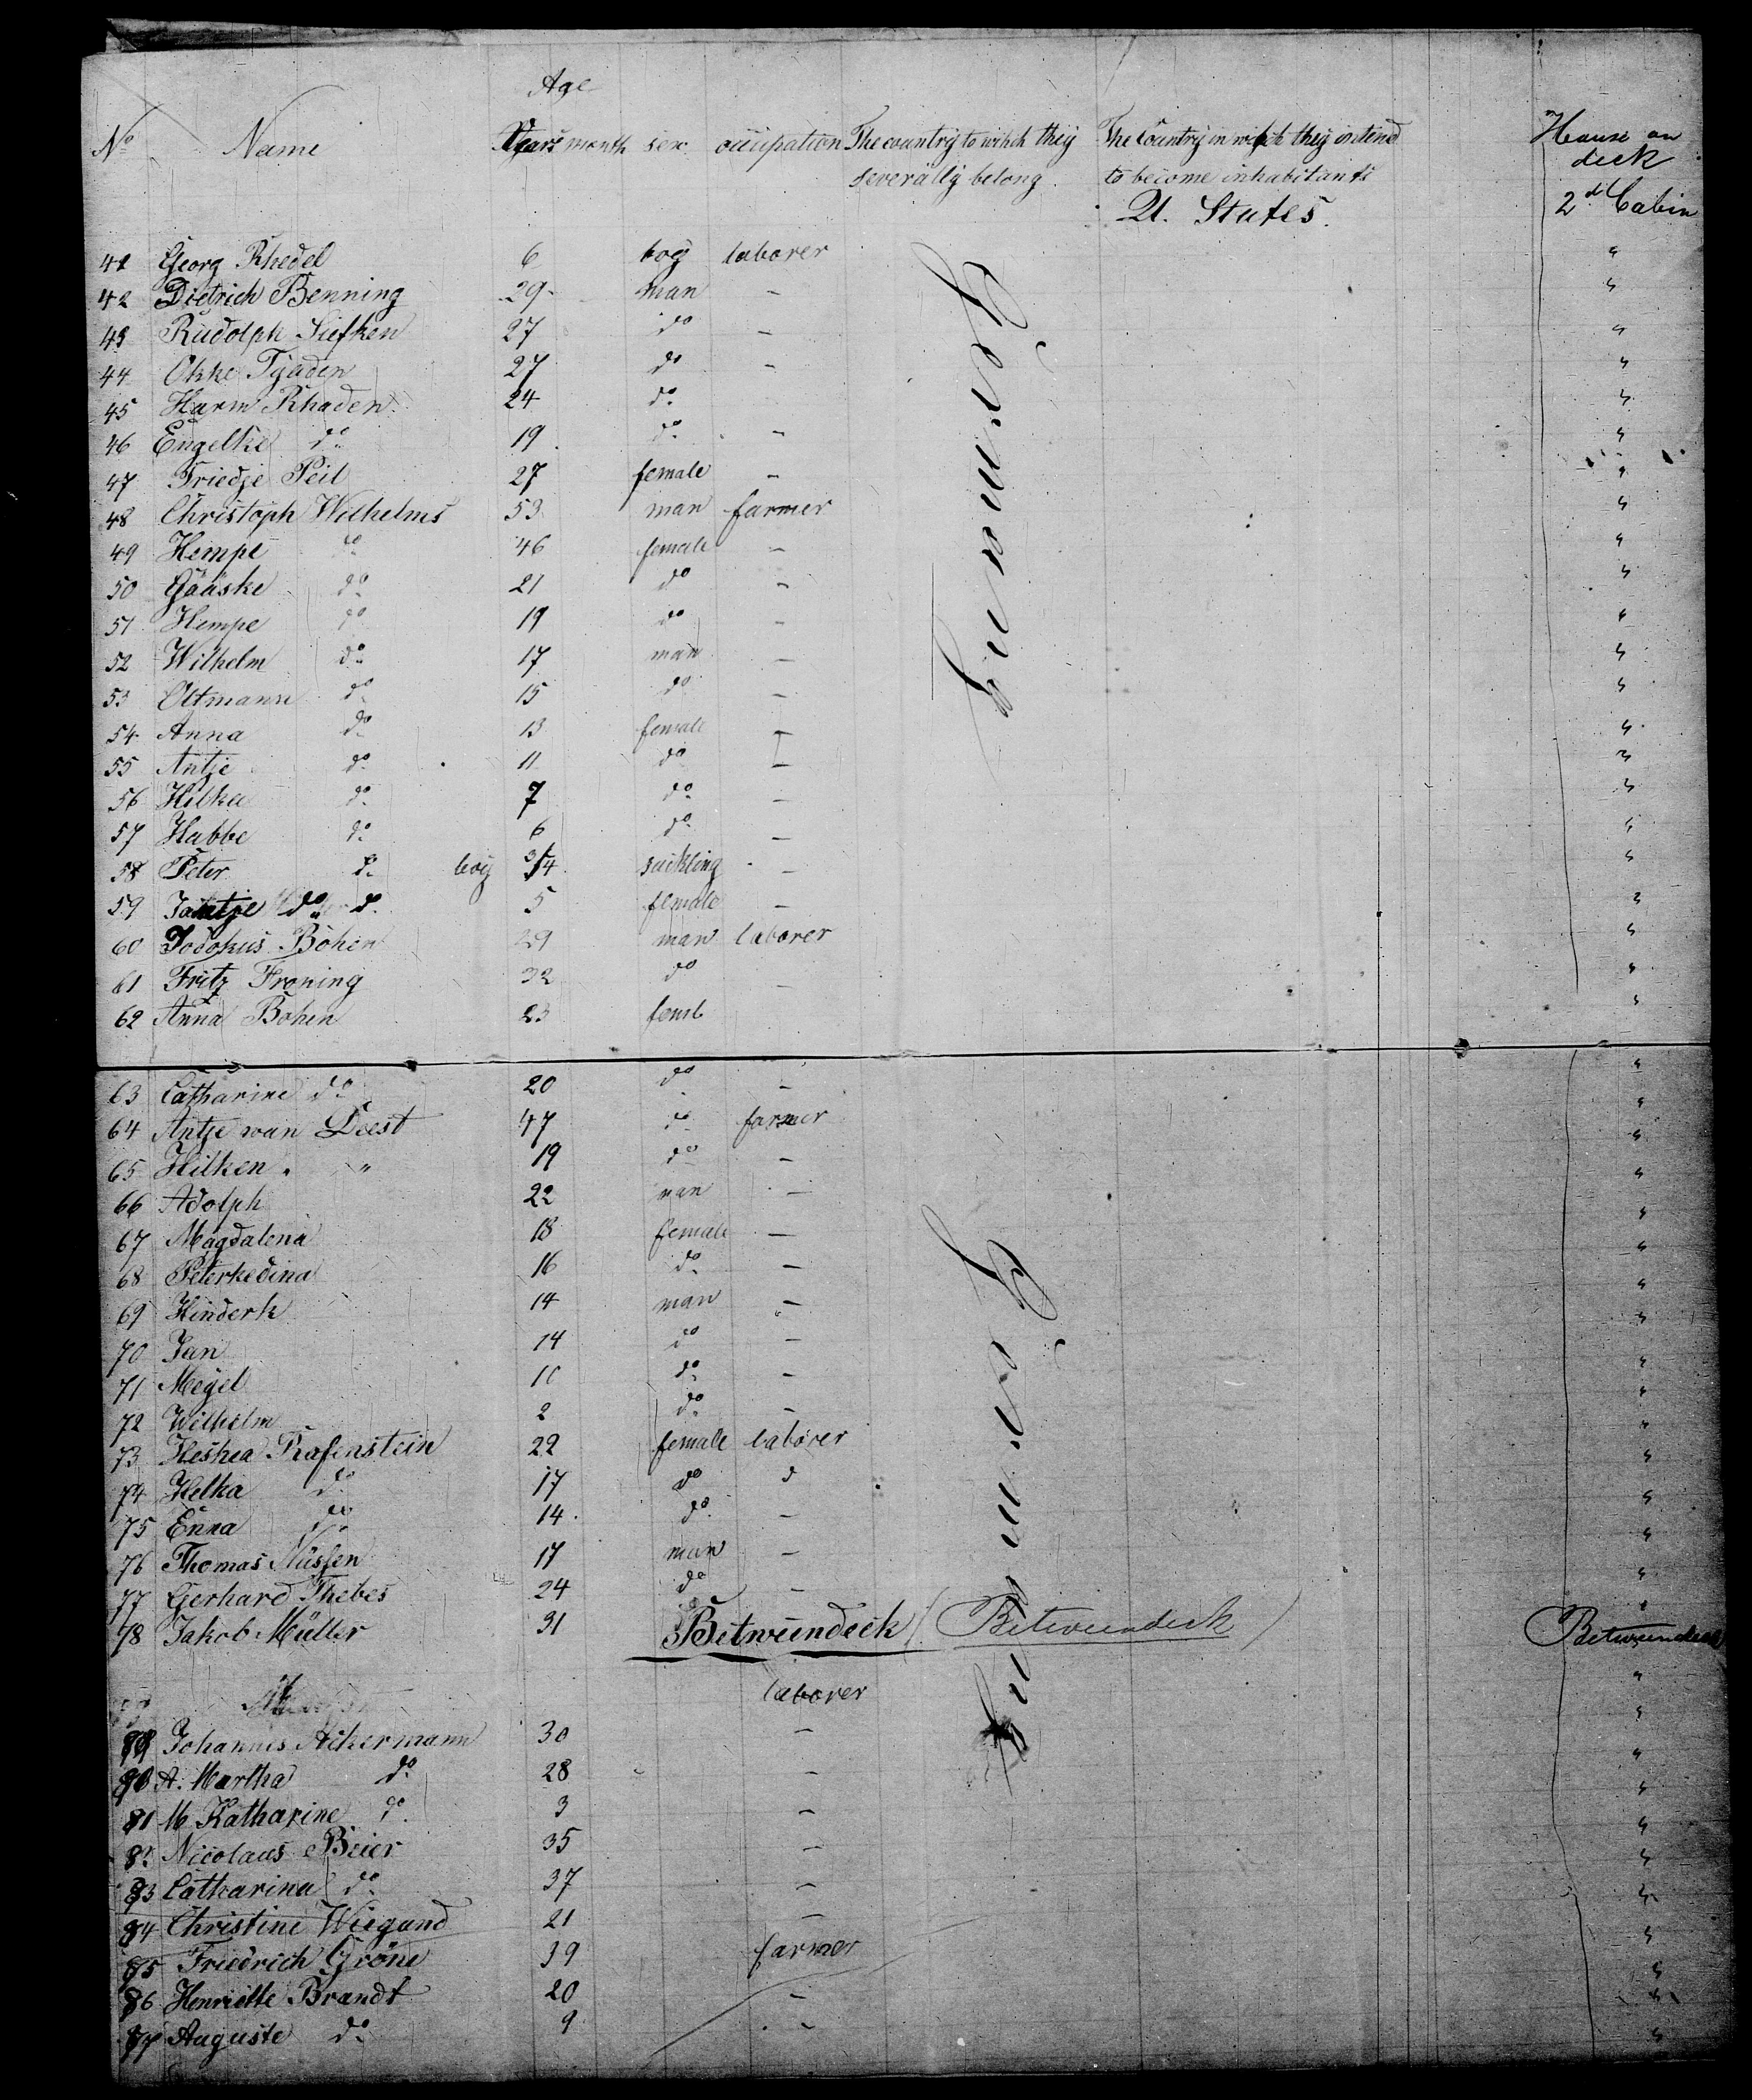 Age
No Name Years month sex occupation The country to wihch they The Country in wihch they intend House on
severally belong. to become inhabitants deck
U. States. 2d Cabin
41 Georg Rhedel 6 boy laborer "
42 Dietrich Benning 29 man - "
43 Rudolph Siefken 27 do - "
44 Okke Tjaden 27 do - "
45 Harm Rhaden 24 do "
46 Engelke do 19 do - "
47 Friedje Peil 27 female - "
48 Christoph Wilhelms 53 man farmer "
49 Hempe do 46 female - "
50 Gaaske do 21 do - "
51 Hempe do 19 do - "
52 Wilhelm do 17 man - "
53 Oltmann do 15 do - "
54 Anna do 13 female - "
55 Antje do 11 do - "
56 Hilka do 7 do - "
57 Habbe do 6 do - "
58 Peter do boy 3/4 suckling - "
59 do do 5 female - "
60 Jodokus Böhen 29 man laborer "
61 Fritz Froning 32 do - "
62 Anna Böhen 23 feml "
Germany
63 Catharine do 20 do - "
64 Antje van Deest 47 do farmer "
65 Hilken " 19 do - "
66 Adolph 22 man - "
67 Magdalena 18 female - "
68 Peterkedina 16 do - "
69 Hinderk 14 man - "
70 Jan 14 do - "
71 Megel 10 do - "
72 Wilhelm 2 do - "
73 Heshea Rafenstein 22 female laborer "
74 Helka do 17 do d "
75 Enna do 14 do - "
76 Thomas Nüssen 17 man - "
77 Gerhard Thebes 24 do - "
78 Jakob Müller 31 Betweendeck (Betweendeck) Betweendeck
Germany
laborer "
79 Johannes Ackermann 30 - "
80 A. Martha do 28 - "
81 M Katharine do 3 - "
82 Nicolaus Beier 35 - "
83 Catharina do 37 - "
84 Christine Wiegand 21 - "
85 Friedrich Gröne 39 farmer "
86 Henriette Brandt 20 - "
87 Auguste do 9 - "